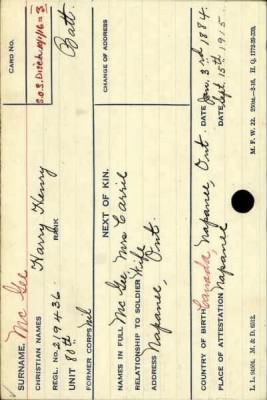 SURNAME, Mc Gee CARD NO.
CHRISTIAN NAMES Harry Henry S.O.S. Disch.
REGL. NO. 219436 RANK
UNIT 80th Batt.
FORMER CORPS Nil
NEXT OF KIN. CHANGE OF ADDRESS
NAMES IN FULL Mc Gee Mrs Carrie
RELATIONSHIP TO SOLDIER Wife
ADDRESS Napanee, Ont.
COUNTRY OF BIRTH Canada, Napanee, Ont. DATE Jan. 3rd 1884.
PLACE OF ATTESTATION Napanee DATE Sept 15th 1915.
M. F. W. 22.